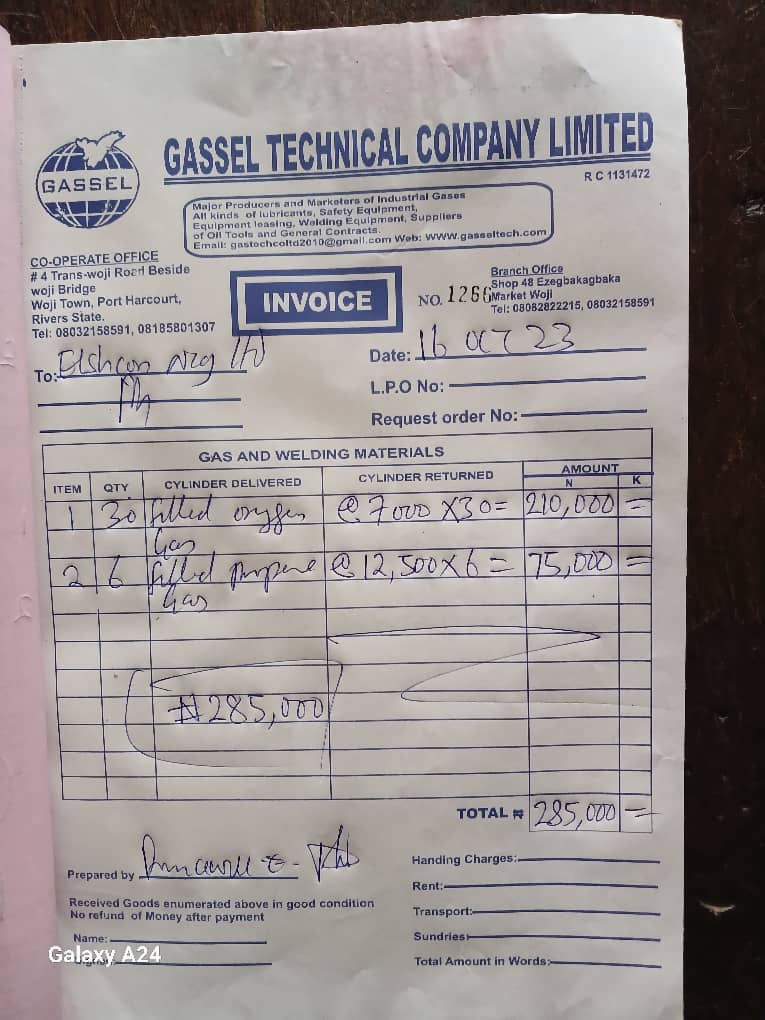 GASSEL TECHNICAL COMPANY LIMITED
GASSEL
R C 1131472
Major Producers and Marketers of Industrial Gases
All kinds of lubricants, Safety Equipment,
Equipment leasing, Welding Equipment, Suppliers
of Oil Tools and General Contracts.
Email: gastechcoltd2010@gmail.com Web: www.gasseltech.com
CO-OPERATE OFFICE
# 4 Trans-woji Road Beside
woji Bridge
Woji Town, Port Harcourt,
Rivers State.
Tel: 08032158591, 08185801307
INVOICE
NO. 1266
Branch Office
Shop 48 Ezegbakagbaka
Market Woji
Tel: 08082822215, 08032158591
To: Elshcon Nig ltd
Ph
Date: 16 OCT 23
L.P.O No:
Request order No:
GAS AND WELDING MATERIALS
ITEM QTY CYLINDER DELIVERED CYLINDER RETURNED AMOUNT
N K
1 30 filled oxygen @ 7000 X30= 210,000 =
Gas
2 6 filled propane @ 12,500X6 = 75,000 =
Gas
₦285,000
TOTAL ₦ 285,000 =
Prepared by
Received Goods enumerated above in good condition
No refund of Money after payment
Name:
Handing Charges:
Rent:
Transport:
Sundries:
Total Amount in Words:
Galaxy A24